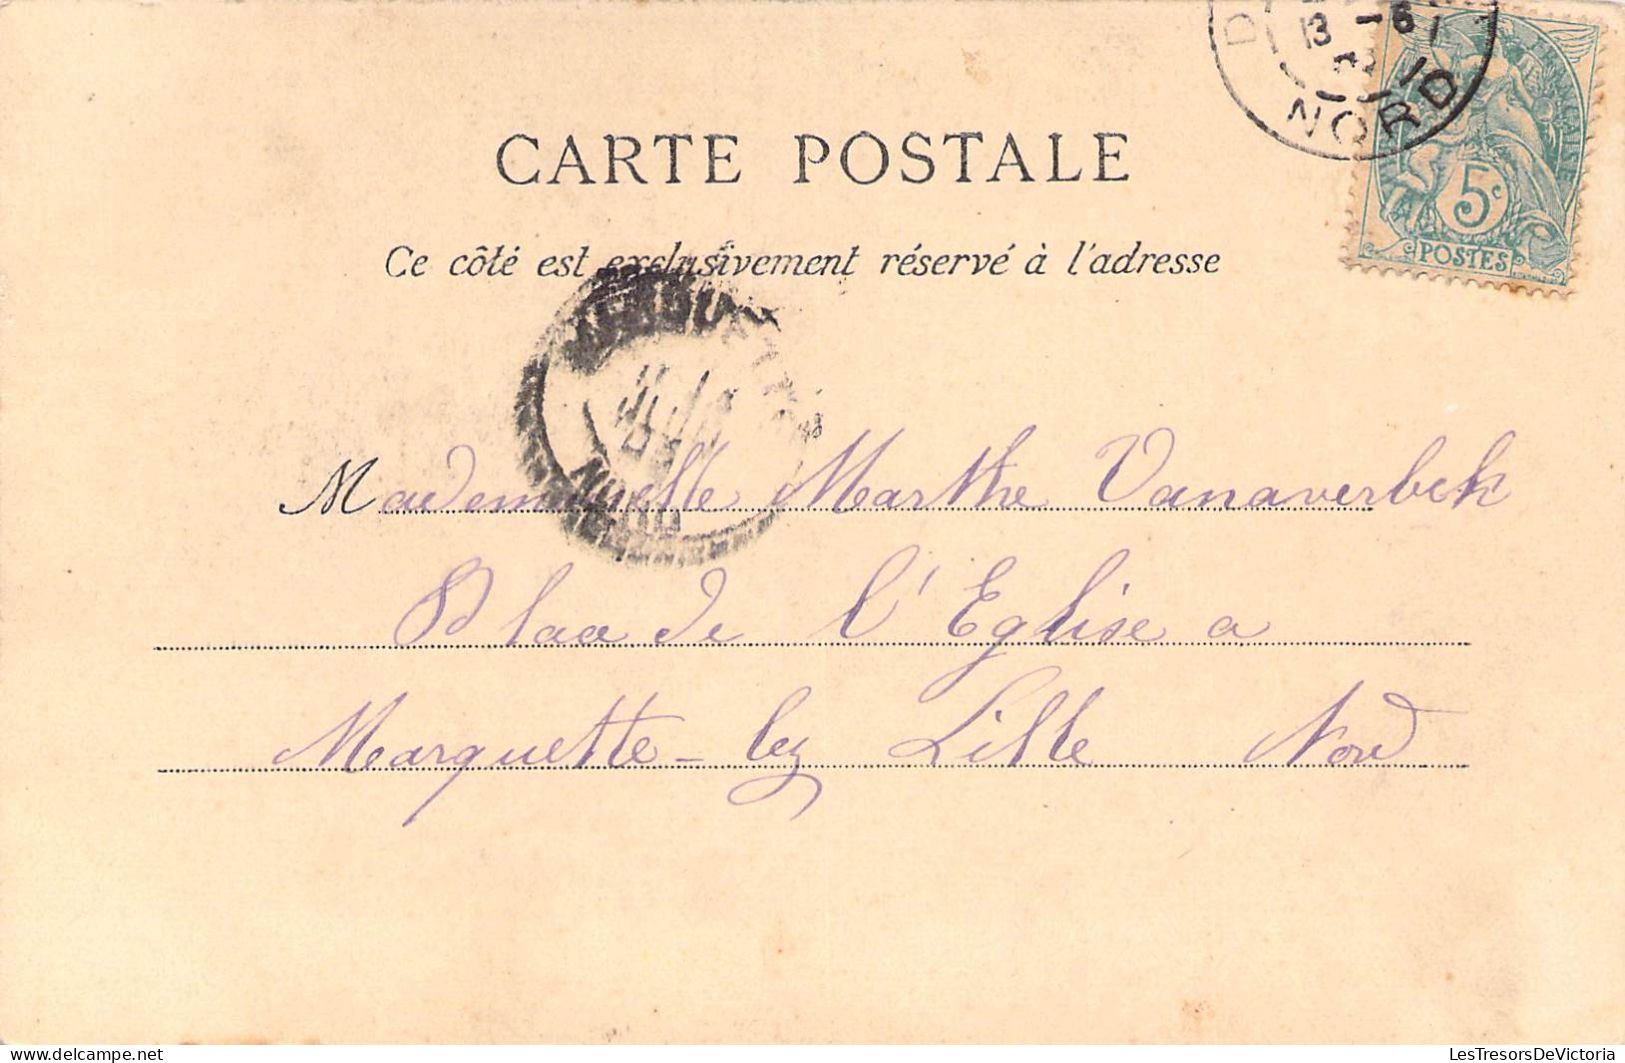 13 -6
NORD
FRANÇAISE
5c
POSTES
CARTE POSTALE
Ce côté est exclusivement réservé à l'adresse
NORD
Mademoiselle Marthe Vanaverbek
Place de l'Eglise a
Marquette-lez Lille Nord
LesTresorsDeVictoria